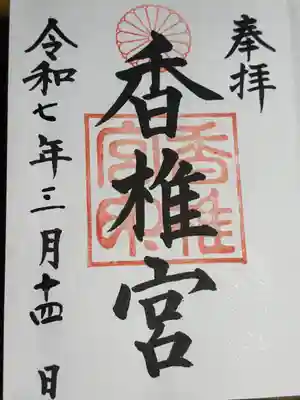 奉拝
香椎宮
令和七年三月十四日
香椎宮印